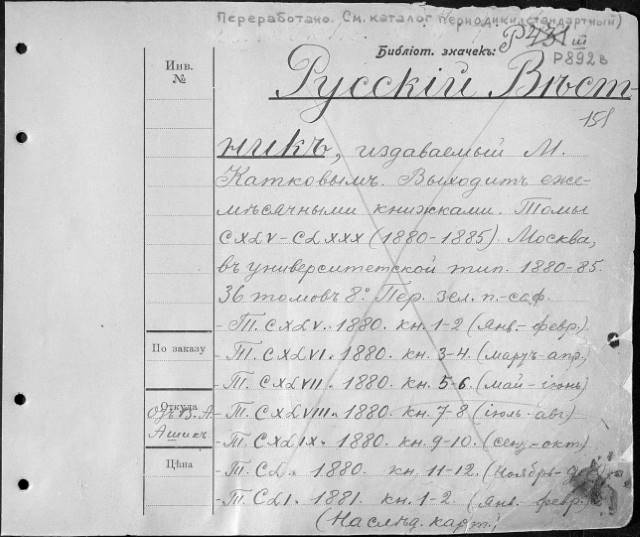 Переработано. См. каталог периодики (стандартный)
Библіот. значекъ: Р431 III
Р892в
Инв.
№
Русскій Вѣст-
151
никъ, издаваемый М.
Катковымъ. Выходитъ еже-
мѣсячными книжками. Томы
CXLV-CLXXX (1880-1885). Москва,
въ университетской тип. 1880-85.
36 томовъ 8° Пер. зел. п.-саф.
- Т. CXLV. 1880. кн. 1-2 (Янв.- февр.)
По заказу
- Т. CXLVI. 1880. кн. 3-4. (мартъ-апр.)
- Т. CXLVII. 1880. кн. 5-6. (май - іюнь)
Откуда
Отъ В. А.
Ашикъ
- Т. CXLVIII. 1880. кн. 7-8 (іюль-авг)
- Т. CXLIX. 1880. кн. 9-10. (сент.-окт)
Цѣна
- Т. CL. 1880. кн. 11-12. (Ноябрь-
- Т. CLI. 1881. кн. 1-2. (Янв. февр.)
(Наслѣд. карт.)